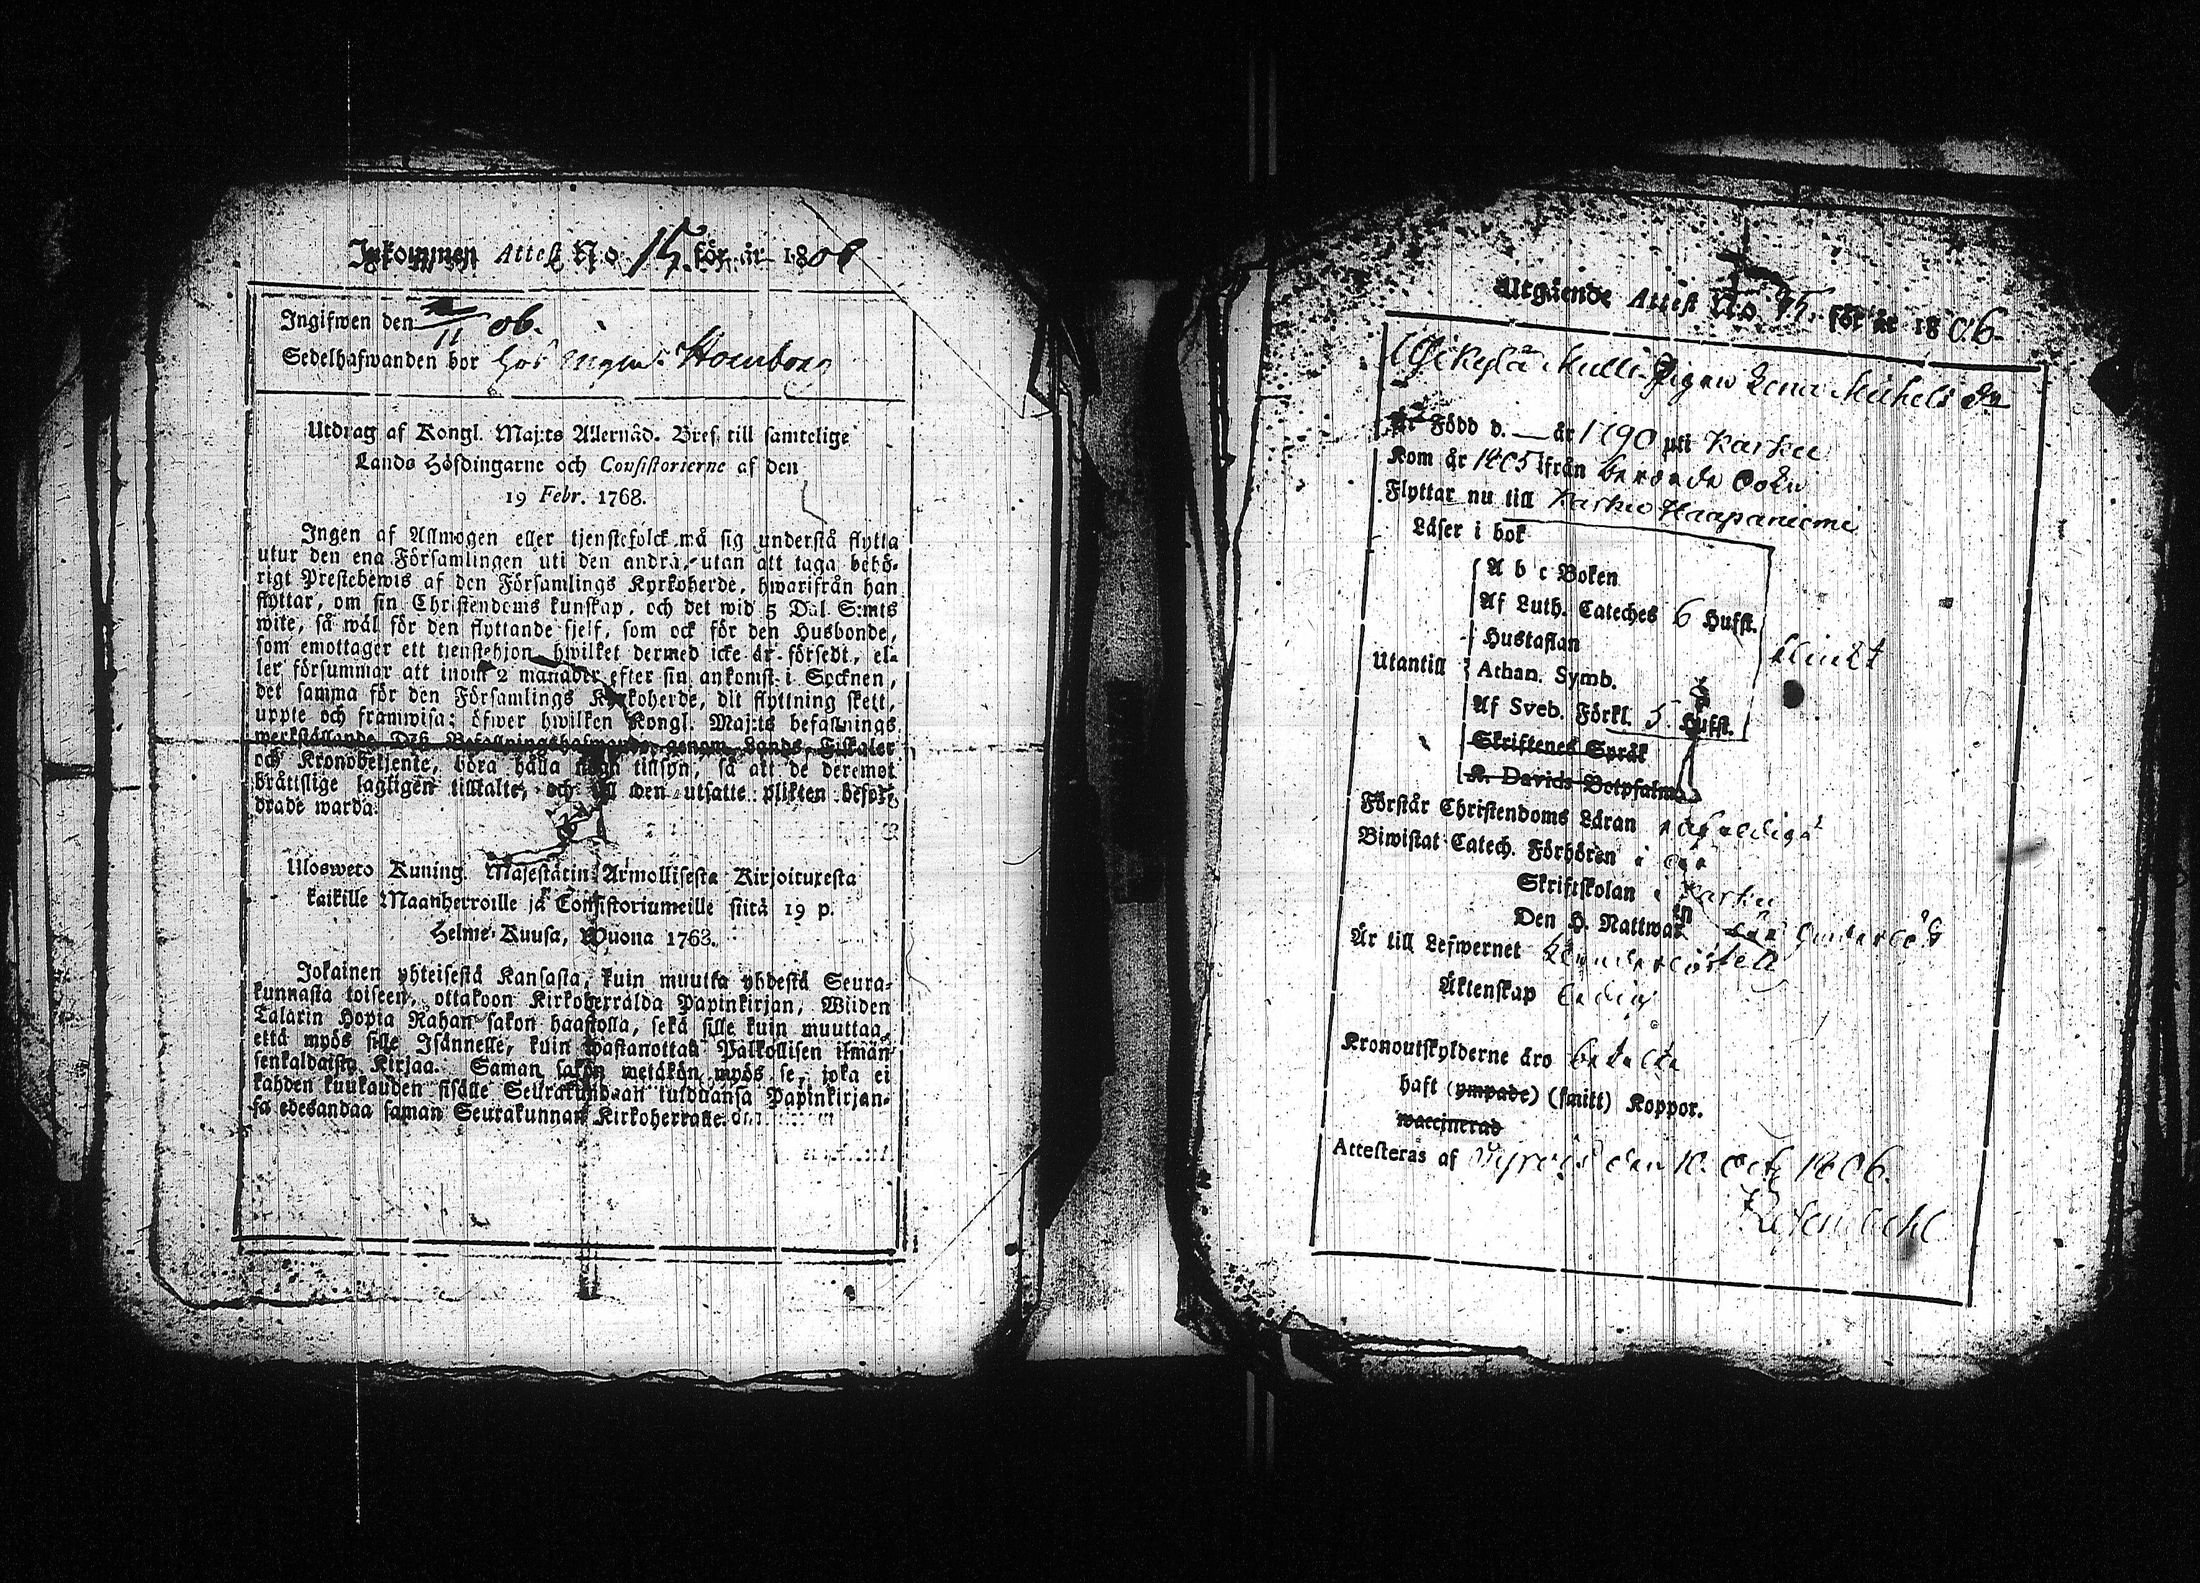 Inkommen Attest No 15 för år 1806
Ingifwen den 2/11 06.
Sedelhafwanden bor hos Holmborg
Utdrag af Kongl. Maj:ts Allernåd. Bref till samtelige
Lands Höfdingarne och Consistorierne af den
19 Febr. 1768.
Ingen af Allmogen eller tjenstefolck må sig understå flytta
utur den ena Församlingen uti den andra, utan att taga behö-
rigt Prestebewis af den Församlings Kyrkoherde, hwarifrån han
flyttar, om sin Christendoms kunskap, och det wid 5 Dal. S:mts
wite, så wäl för den flyttande sjelf, som ock för den Husbonde,
som emottager ett tienstehjon, hwilket dermed icke är försedt, el-
ler försummar att inom 2 månader efter sin ankomst i Socknen,
det samma för den Församlings Kyrkoherde, dit flyttning skett,
uppte och framwisa; öfwer hwilken Kongl. Maj:ts befallnings
werkställande Dess Befallningshafwande genom Lands Fiskaler
och Kronobetjente, böra hålla noga tillsyn, så att de deremot
bråttslige lagligen tilltalte, och till den utsatte plikten beford-
drade warda.
Ulosweto Kuning. Majestätin Armollisesta Kirjoituxesta
kaikille Maanherroille ja Consistoriumeille siitä 19 p.
Helme-Kuusa, Wuona 1768.
Jokainen yhteisestä Kansasta, kuin muutta yhdestä Seura-
kunnasta toiseen, ottakoon Kirkoherralda Papinkirjan, Wiiden
Talarin Hopia Rahan sakon haastolla, sekä sille kuin muuttaa,
että myös sille Isännelle, kuin wastanottaa Palkollisen ilman
senkaldaista Kirjaa. Saman sakon wetäkön myös se, joka ei
kahden kuukauden sisälle Seurakundaan tulduansa Papinkirjan-
sa edesandaa saman Seurakunnan Kirkoherralle.
Utgående Attest No 75. för år 1806.
Pigan Lena Michels dr
Är Född d. — år 1790 uti Karku
Kom år 1805 ifrån berörde Sokn
Flyttar nu till Karku Haapaniemi
Läser i bok
A b c Boken
Af Luth. Cateches 6 Hufst.
Hustaflan
Utantill Athan. Symb.
Af Sveb. Förkl. 5 Hufst.
Skriftenes Språk
K. Davids Botpsalmer
Förstår Christendoms Läran enfaldigt
Biwistat Catech. Förhören i år
Skriftskolan i Karku
Den H. Nattwarden
Är till Lefwernet
Äktenskap ledig
Kronoutskylderne äro betalte
haft (ympade) (smitt) Koppor.
waccinerad
Attesteras af den 10. Octz 1806.